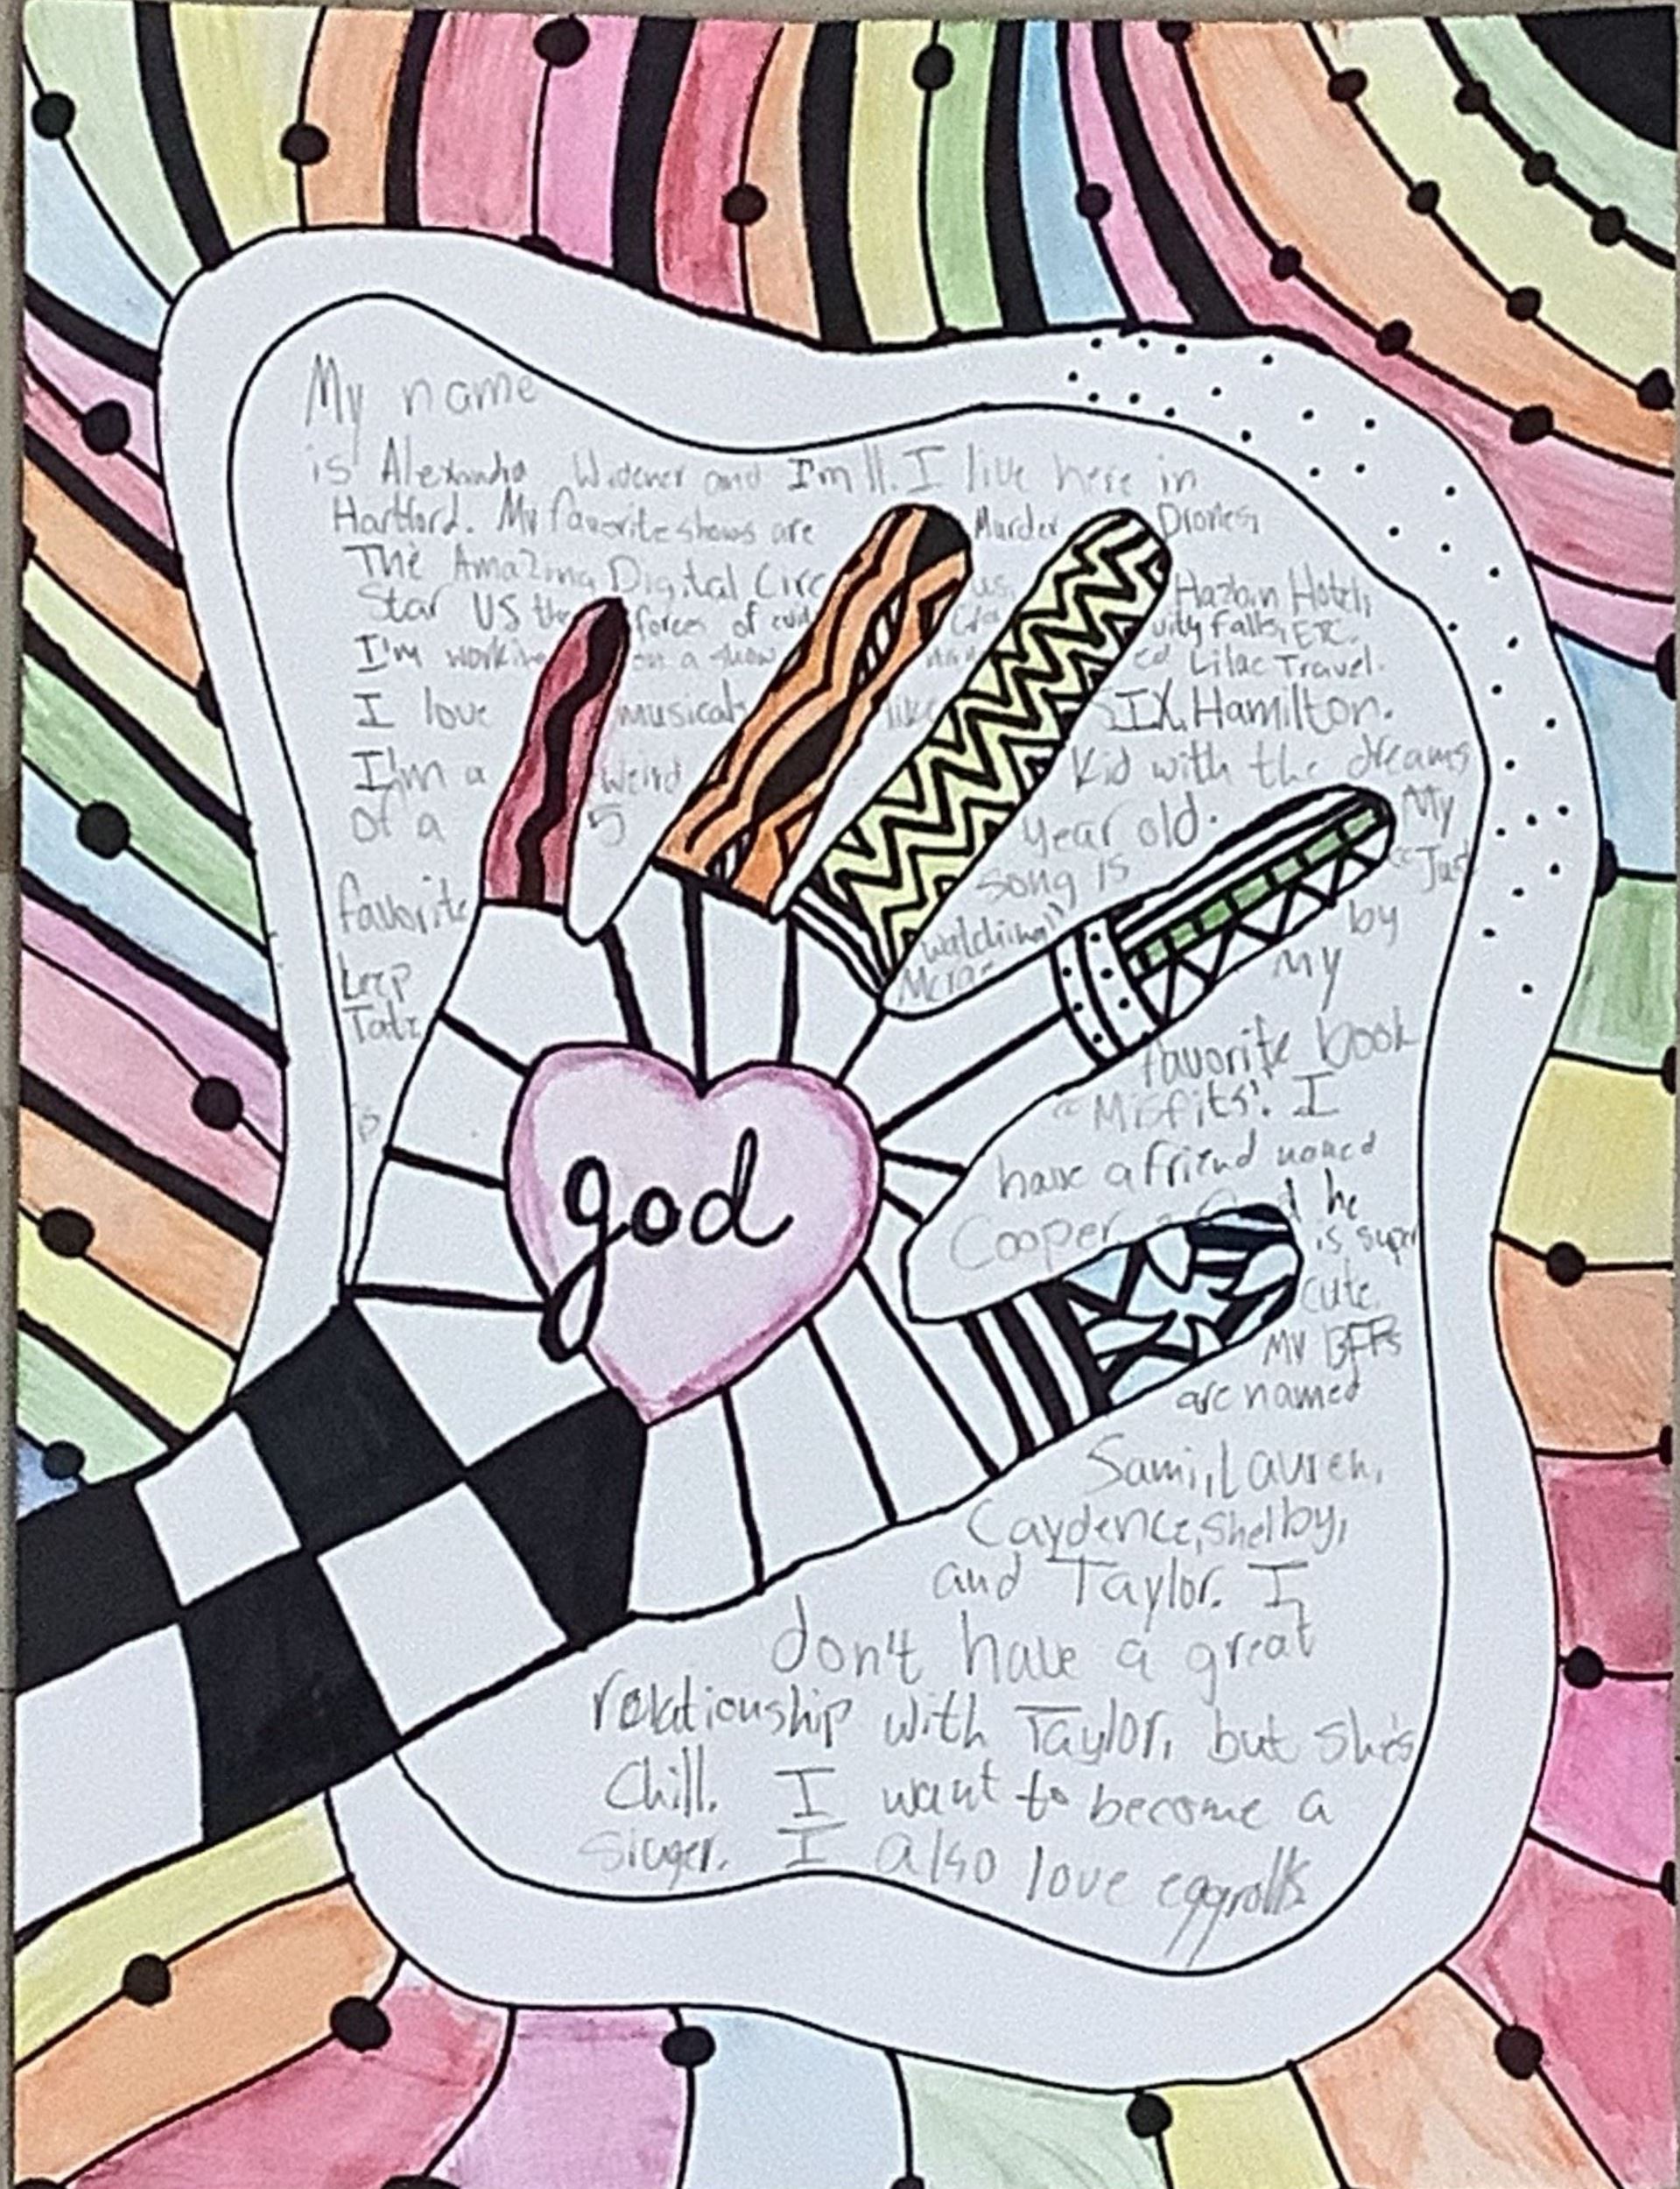 My name
is Alexandra Widener and I'm 11. I live here in
Hartford. My favorite shows are Murder Drones,
The Amazing Digital Circus, Hazbin Hotel,
Star VS the forces of evil Gravity Falls, ETC.
I'm working on a show named Lilac Travel.
I love musicals like SIX, Hamilton.
I'm a weird Kid with the dreams
of a 5 year old. My
favorite song is "Just
watching" by
my
favorite book
is "Misfits". I
have a friend named
Cooper and he
is super
cute.
My BFFs
are named
Sami, Lauren,
Caydence, Shelby,
and Taylor. I
don't have a great
relationship with Taylor, but she's
Chill. I want to become a
singer. I also love eggrolls
god